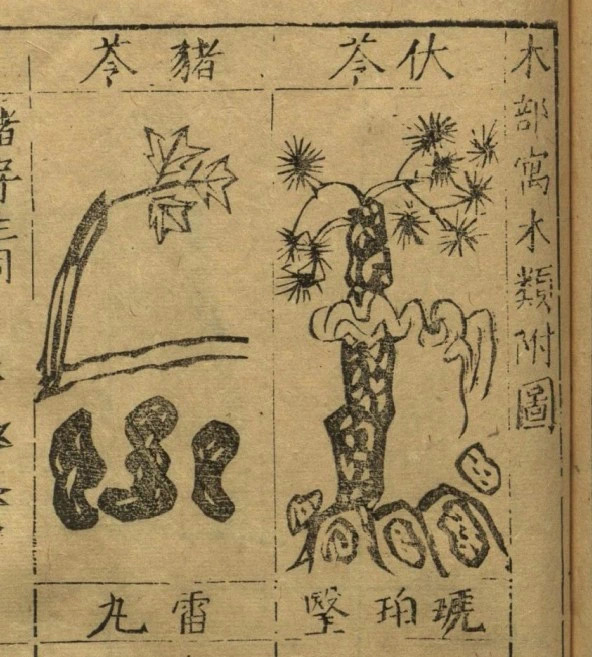 木部寓木類附圖
伏苓
豬苓
琥珀瑿
雷丸